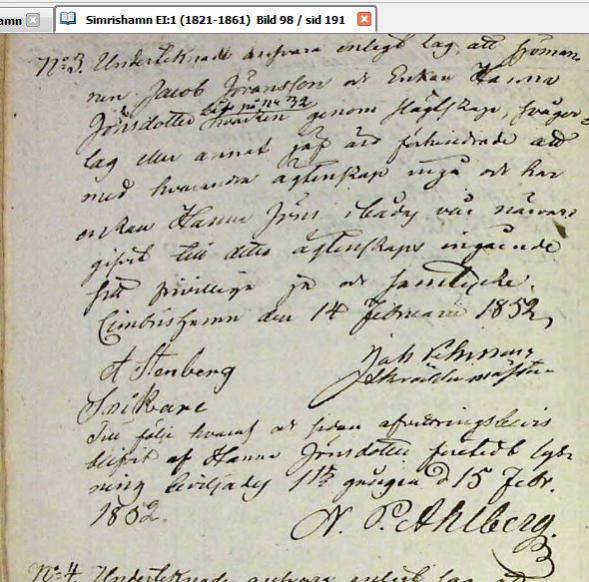 amn
Simrishamn EI:1 (1821-1861) Bild 98 / sid 191
No 3. Undertecknade ansvara enligt lag, att Sjöman-
nen Jacob Jöransson och Enkan Hanna
Jönsdotter hvarken genom Slägtskap, Svåger-
lag eller annat jäf äro förhindrade att
med hvarandra ägtenskap ingå och har
enkan Hanna Jöns i bådas vår närvaro
gifvit till detta ägtenskaps ingående
sitt frivilliga ja och samtycke.
Cimbrishamn den 14 Februarii 1852
A Stenberg
Skräddaremästare
Till följe hvaraf och sedan afvittringsbevis
blifvit af Hanna Jönsdotter företedt lys-
ning beviljades 1sta gången d 15 Febr.
1852.
N. P. Ahlberg
No 4. Undertecknade ansvara enligt lag att